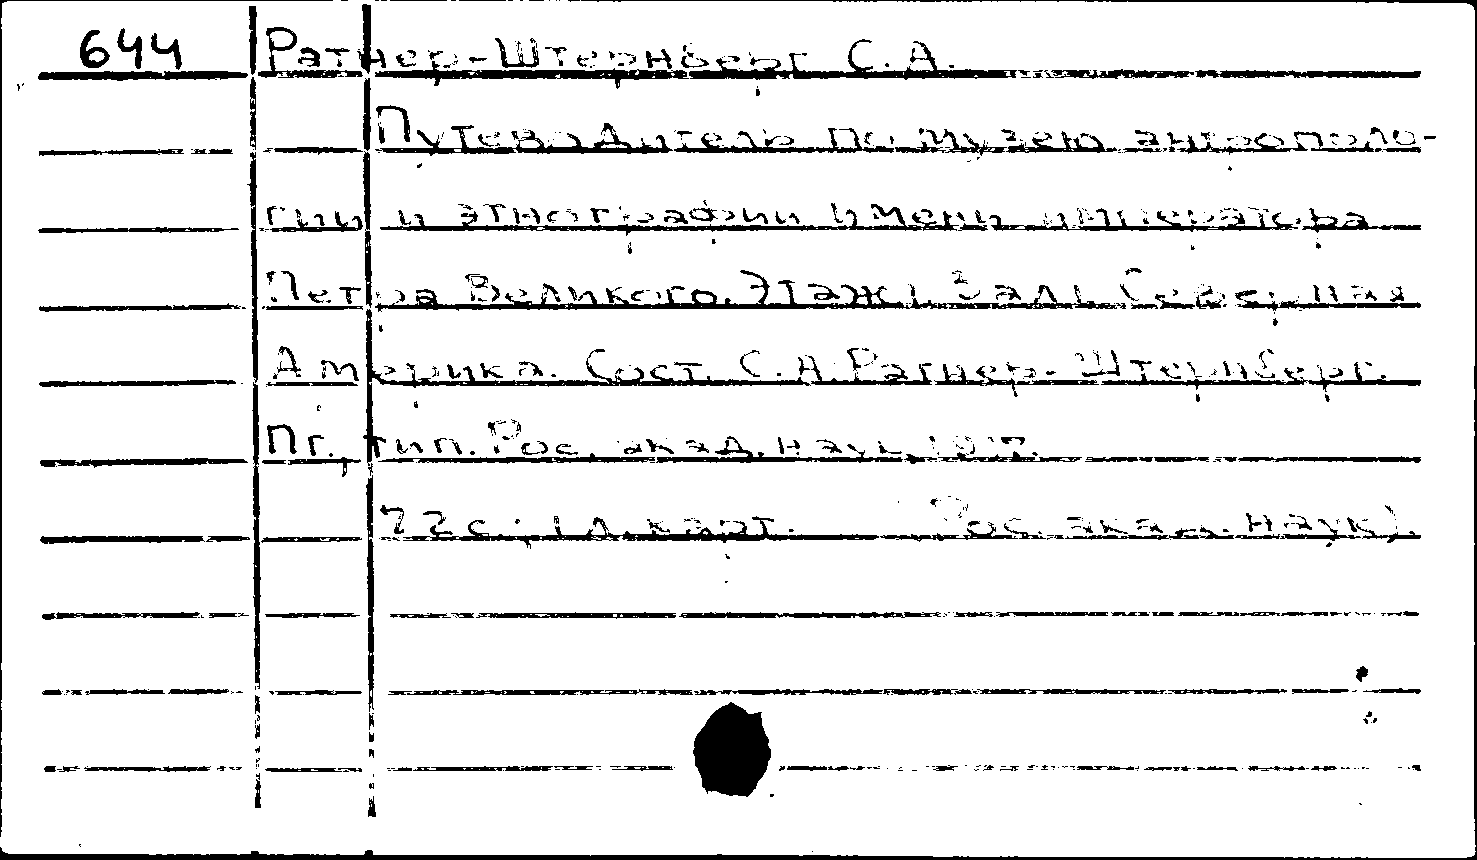 644 Ратнер-Штернберг С.А.
Путеводитель по музею антрополо-
гии и этнографии имени императора
Петра Великого. Этаж I. Зал I. Северная
Америка. Сост. С.А. Ратнер-Штернберг.
Пг., тип. Рос. акад. наук,
72 с.; 1 л. карт. Рос. акад. наук).